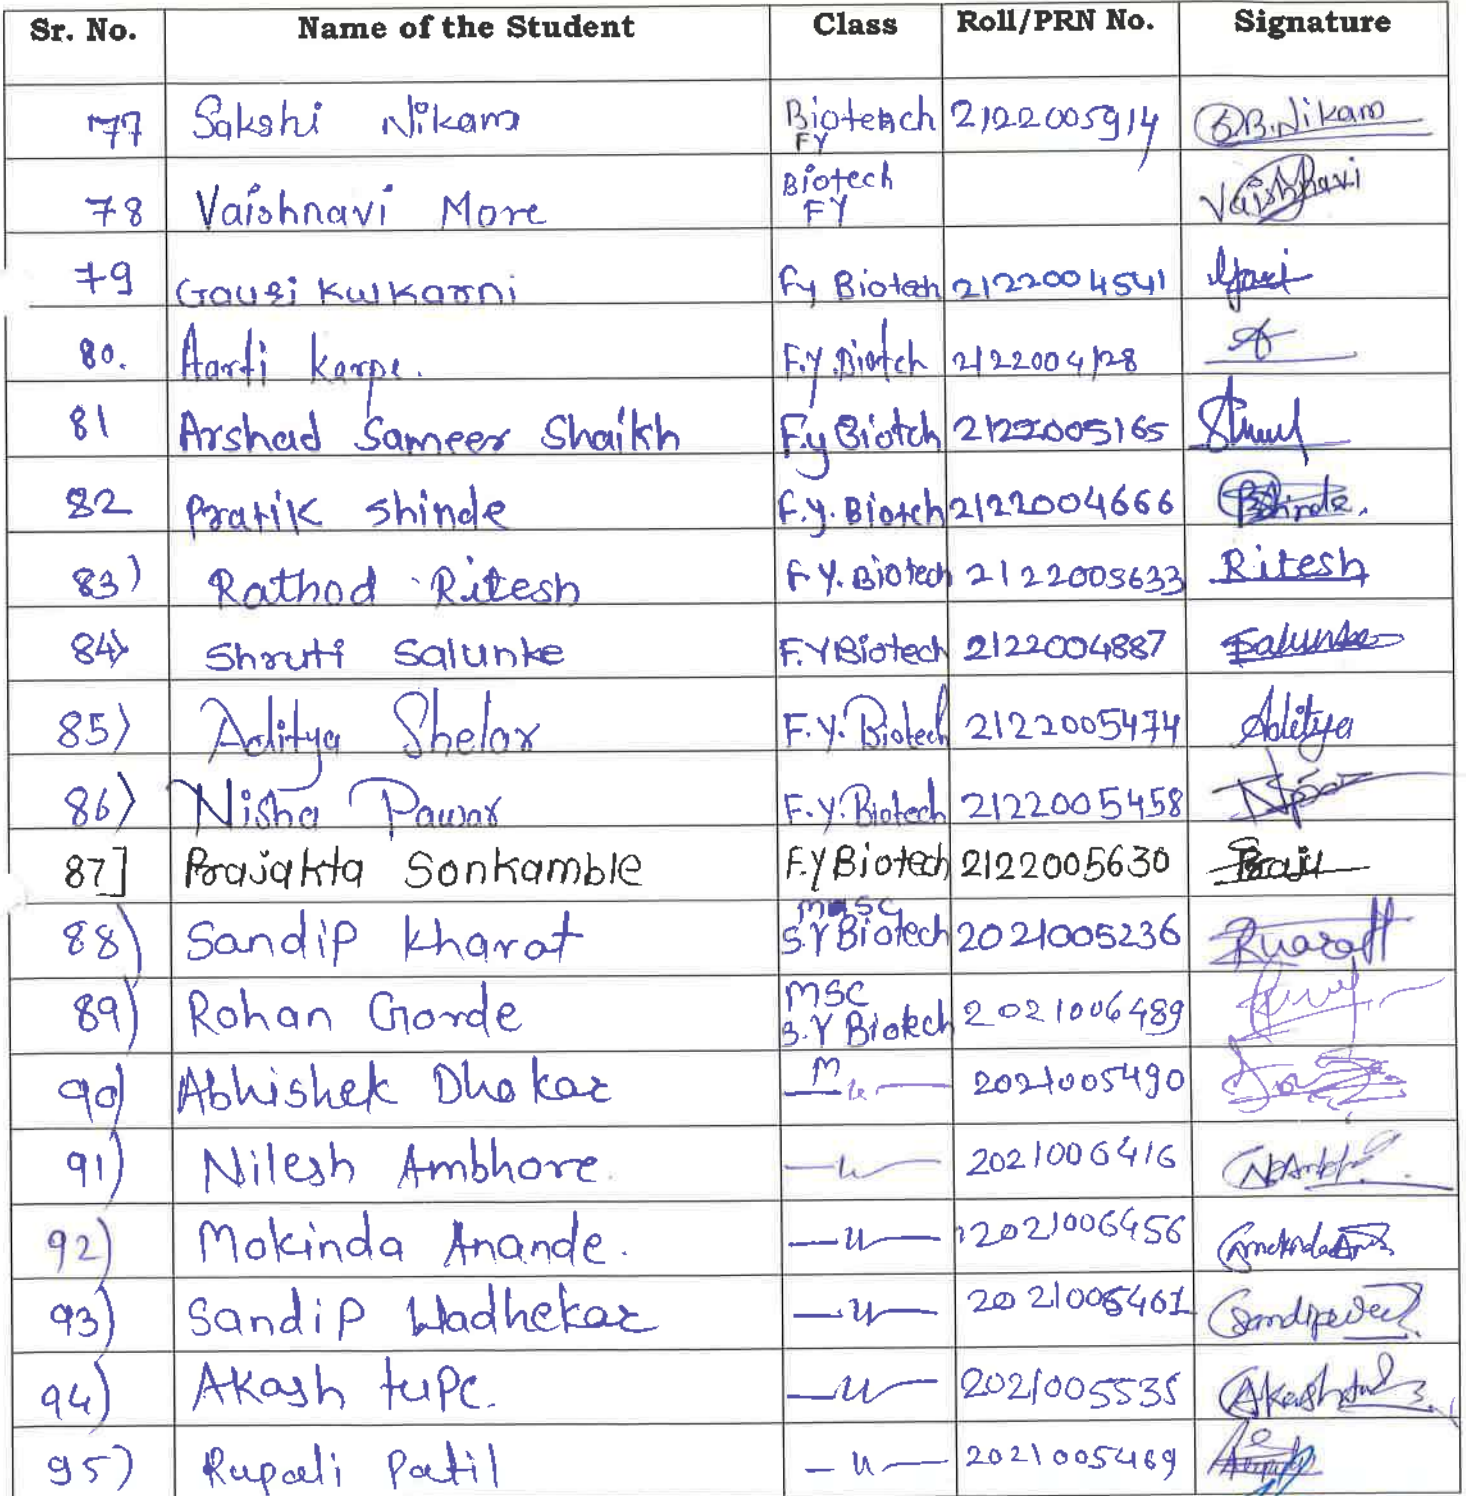 Sr. No. Name of the Student Class Roll/PRN No. Signature
77 Sakshi Nikam Biotench FY 2122005914 S.B.Nikam
78 Vaishnavi More Biotech FY Vaishnavi
79 Gauri Kulkarni Fy Biotech 2122004541 Gauri
80. Aarti karpe. F.Y.Biotch 2122004128
81 Arshad Sameer Shaikh F.y Biotch 2122005165
82 Pratik shinde F.y. Biotech 2122004666 PShinde.
83) Rathod Ritesh F.Y. Biotech 2122005633 Ritesh
84) Shruti Salunke F.Y Biotech 2122004887 Salunke
85) Aditya Shelar F.Y. Biotech 2122005474 Aditya
86) Nisha Pawar F.Y. Biotech 2122005458
87] Prajakta Sonkamble F.Y Biotech 2122005630 Praju
88) Sandip Kharat MSC S.Y Biotech 2021005236 Kharat
89) Rohan Gorde MSC S.Y Biotech 2021006489
90) Abhishek Dhakar —״— 2021005490
91) Nilesh Ambhore. —״— 2021006416
92) Mokinda Anande. —״— 2021006456
93) Sandip Wadhekar —״— 2021005461
94) Akash tupe. —״— 2021005535
95) Rupali Patil —״— 2021005469